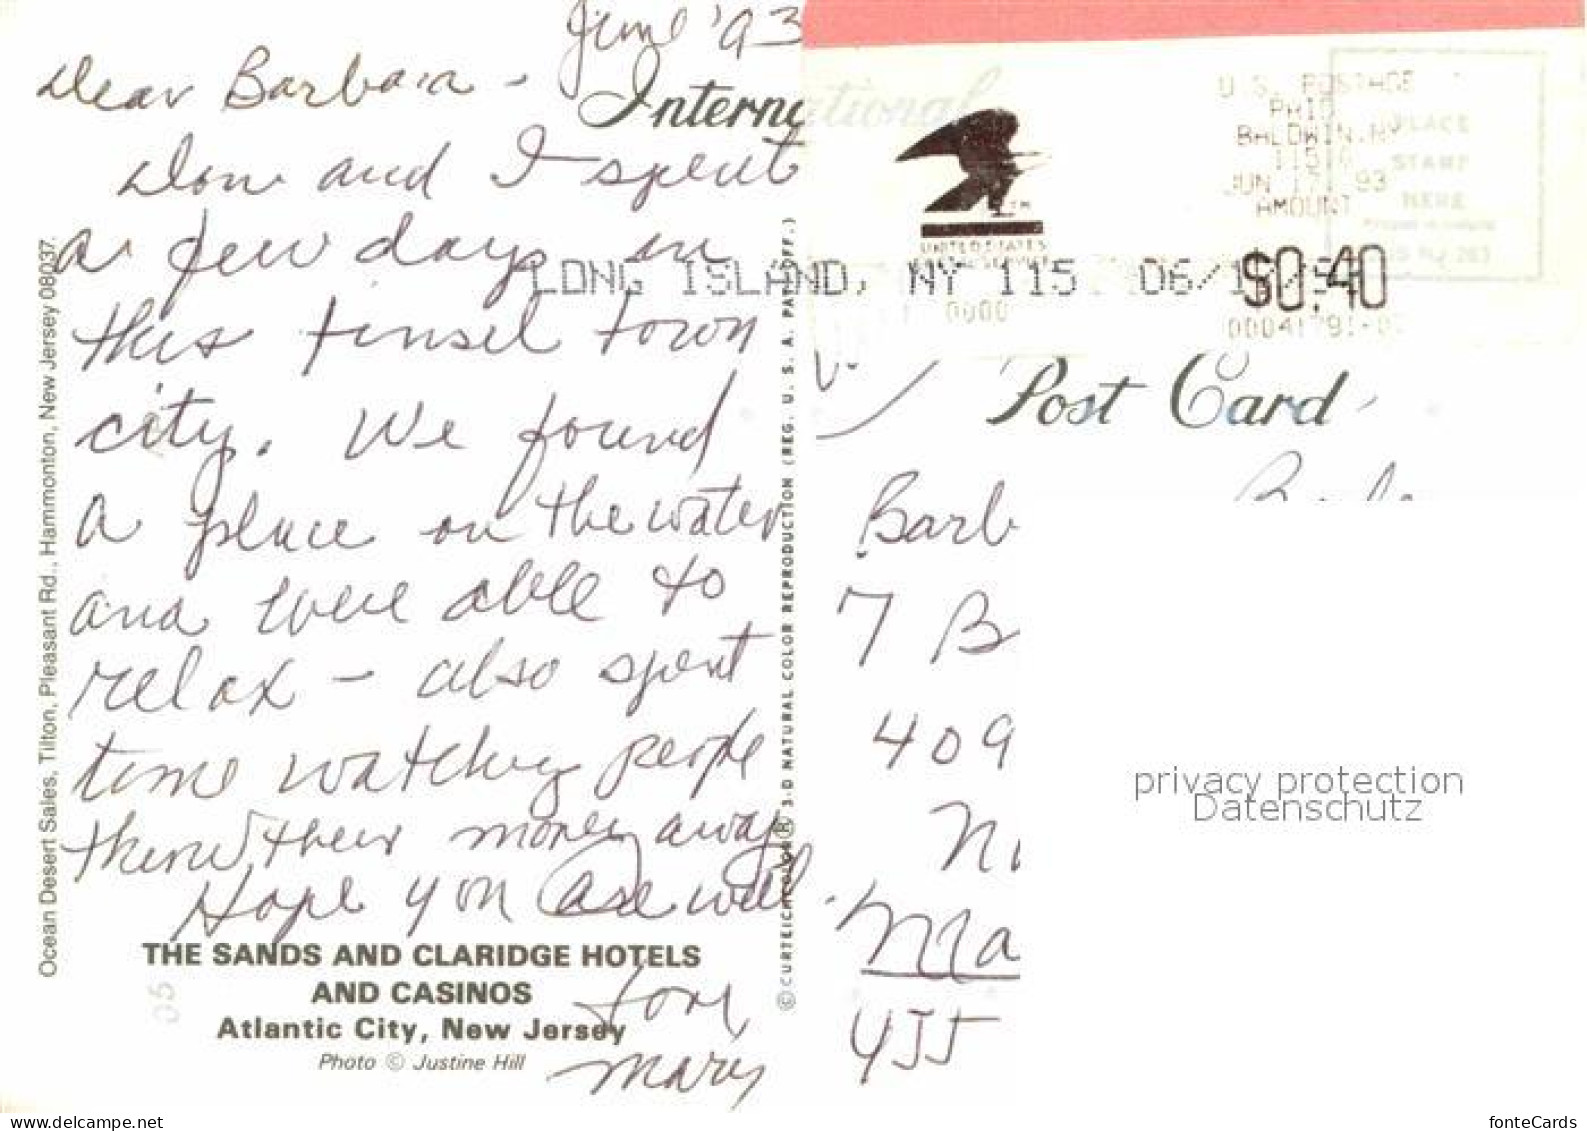 June '93
Dear Barbara -
International
Don and I spent
a few days in
this tinsel town
city. We found
a place on the water
and were able to
relax - also spent
time watching people
throw their money away
Hope you are well.
THE SANDS AND CLARIDGE HOTELS
AND CASINOS
Atlantic City, New Jersey
Photo © Justine Hill
Love
Mary
Ocean Desert Sales, Tilton, Pleasant Rd., Hammonton, New Jersey 08037.
© CURTEICHCOLOR® 3-D NATURAL COLOR REPRODUCTION (REG. U. S. A. PAT. OFF.)
U.S. POSTAGE
PAID
BALDWIN.NY
11510
JUN 17, 93
AMOUNT
$0.40
0000
PLACE
STAMP
HERE
UNITED STATES
LONG ISLAND, NY 115 06/
Post Card
Barb
7 B
409
Ma
YJJ
privacy protection
Datenschutz
www.delcampe.net
fonteCards